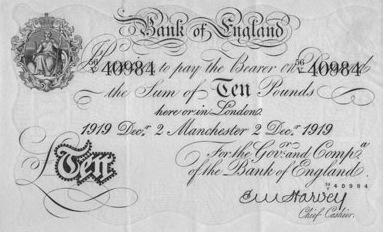 Bank of England
56/V 40984 56/V 40984
to pay the Bearer on Demand
the Sum of Ten Pounds
here or in London
1919 Decr. 2 Manchester 2 Decr. 1919
For the Govr. and Compa.
of the Bank of England.
40984
£Ten
E M Harvey
Chief Cashier.